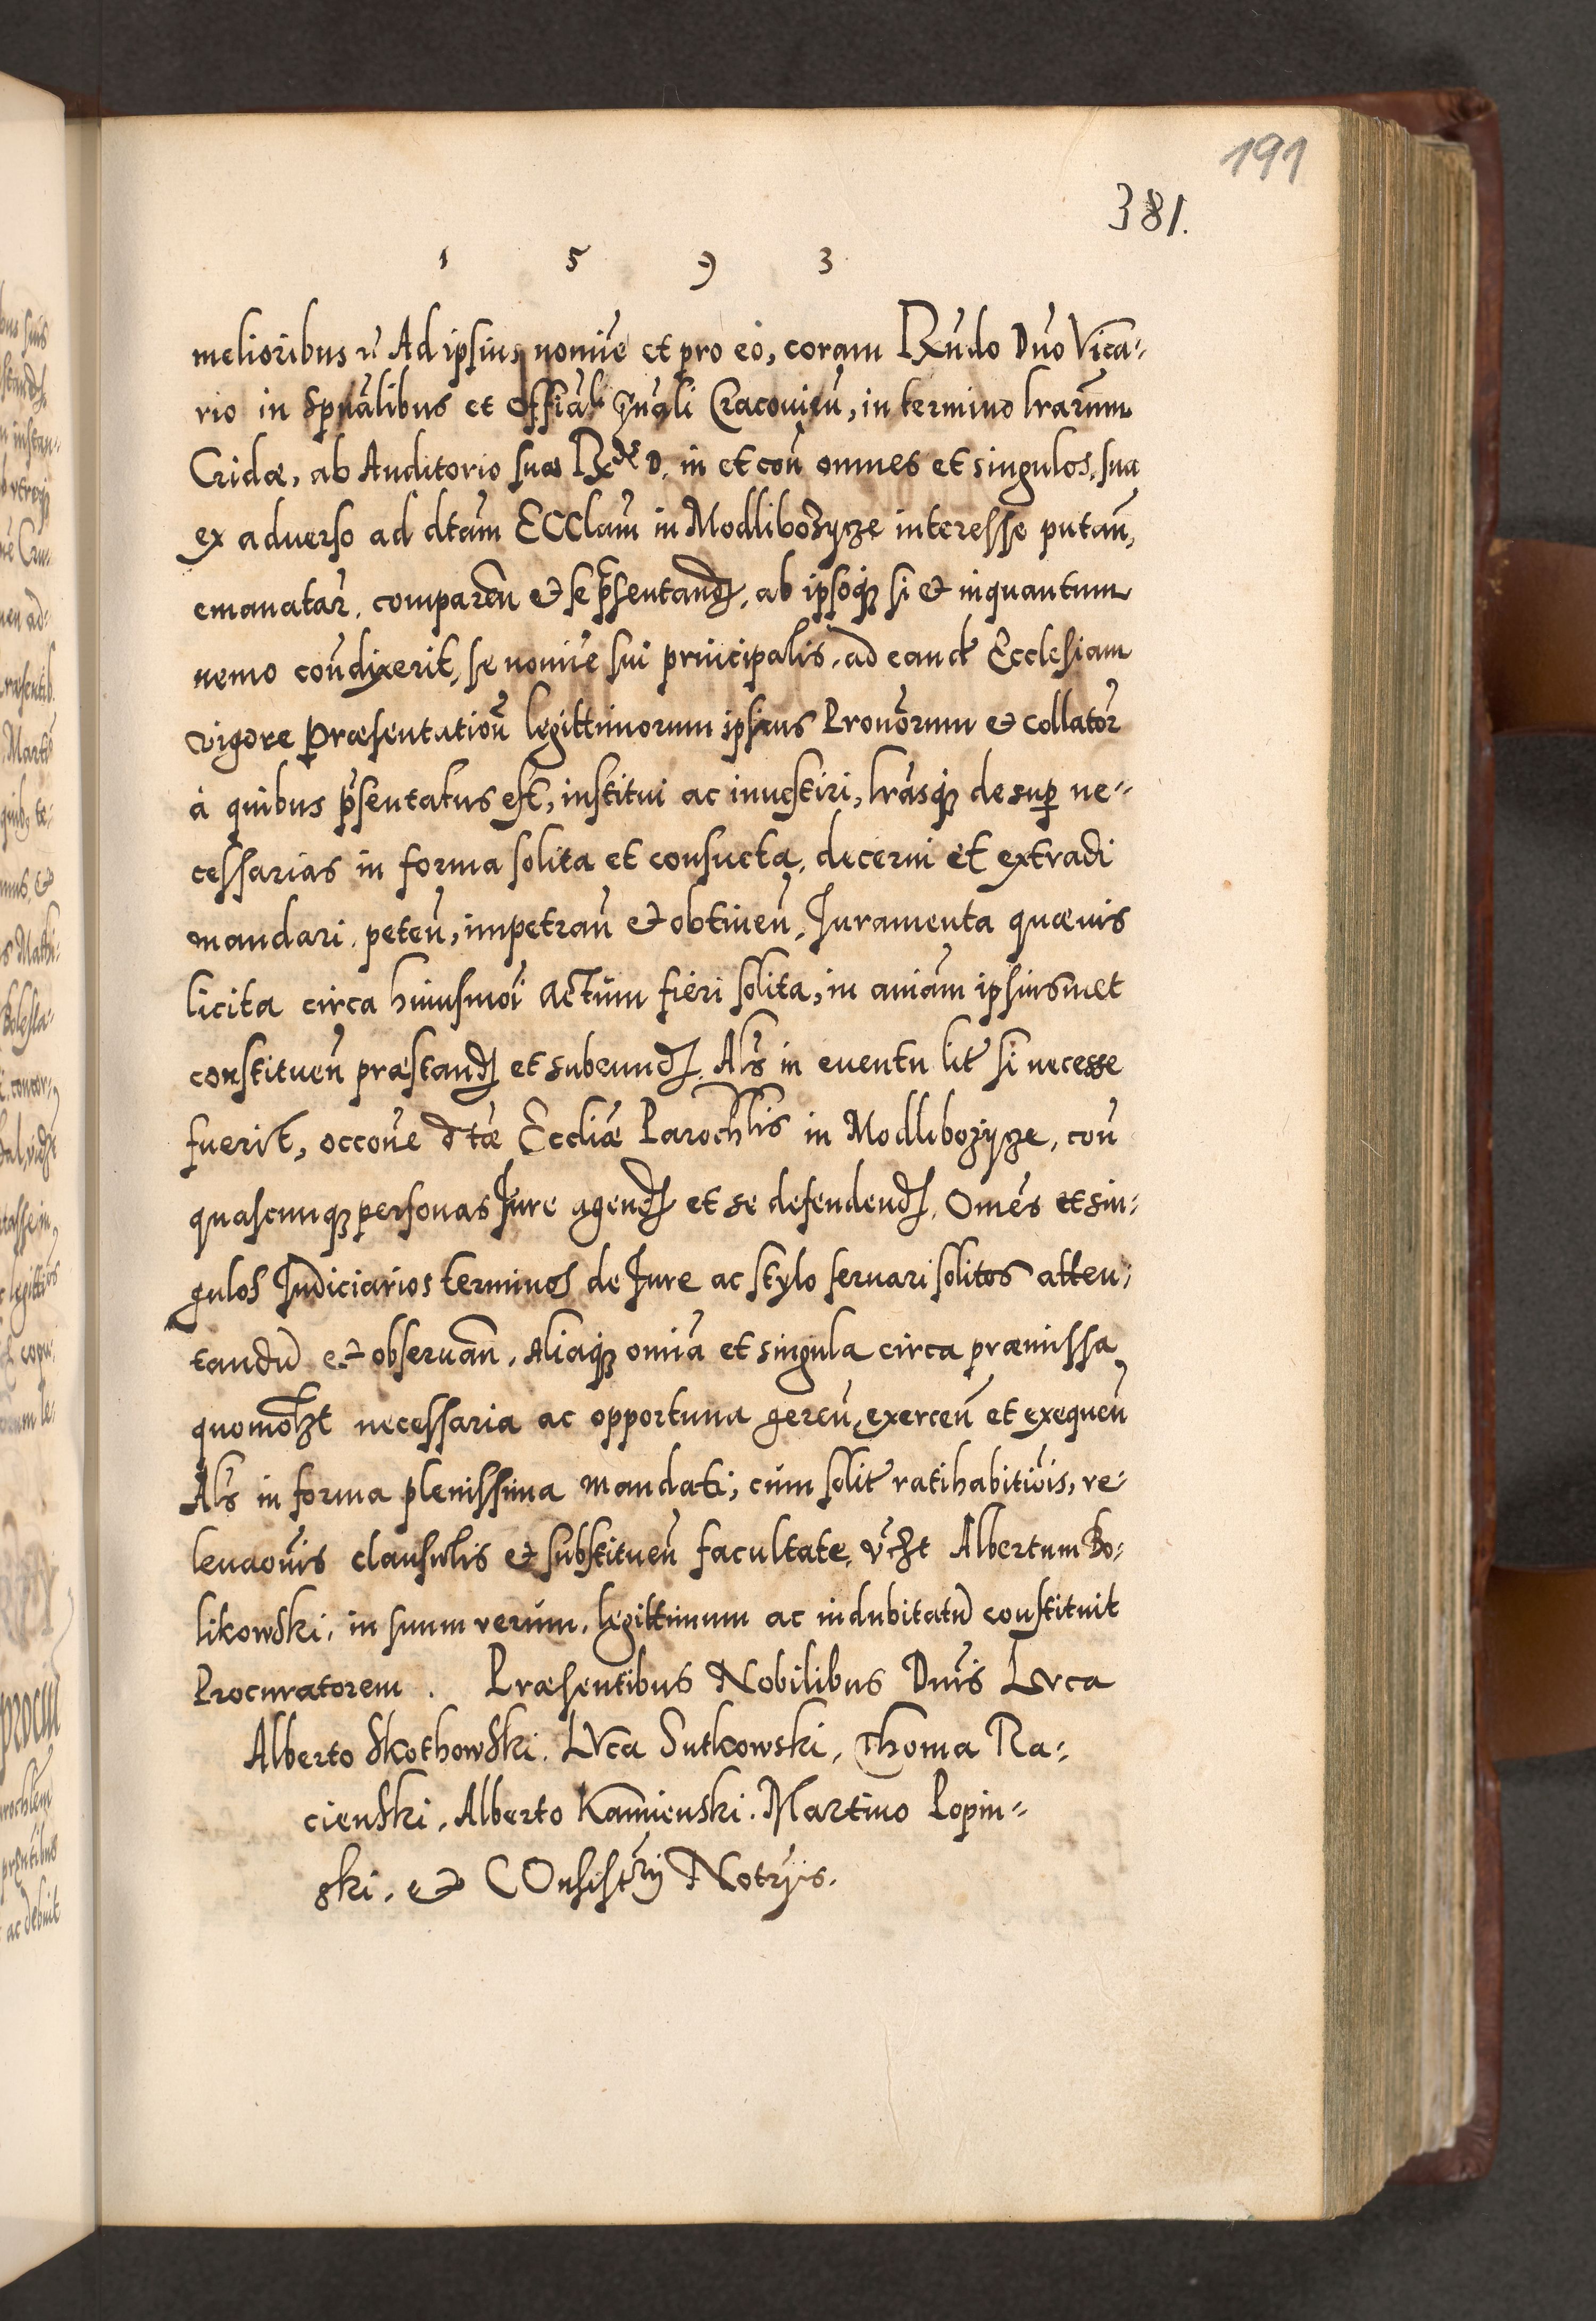 191
381.
1 5 9 3
melioribus etc. Ad ipsius nomie et pro eo, coram Rndo Dno Vica-
rio in Spualibus et Offiali gnali Cracovien, in termino lrarum
Cridæ, ab Auditorio suæ Rx D. in et con omnes et singulos, sua
ex adverso ad dtam ECClam in Modlibożycze interesse putan,
emanatar. comparen et se præsentand, ab ipsoq si et inquantum
nemo condixerit, se nomie sui principalis, ad eand Ecclesiam
vigore Præsentation legittimorum ipsius Pronorum et collator
à quibus psentatus est, institui ac investiri, lrasq desup ne-
cessarias in forma solita et consueta, decerni et extradi
mandari, peten, impetran et obtinen, Juramenta quævis
licita circa huiusmoi actum fieri solita, in aniam ipsiusmet
constituen præstand et subeund. Als in eventu lit si necesse
fuerit, occone dtæ Eccliæ Parochlis in Modlibożycze, con
quascunq personas Jure agend et se defendend, Omes et sin-
gulos Judiciarios terminos de Jure ac stylo servari solitos atten-
tandu et observan, Aliaq omia et singula circa præmissa
quomolzt necessaria ac opportuna geren, exercen et exequen
Als in forma plenissima mandati, cum solit ratihabitiois, re-
levaonis clausulis et substituen facultate, vczt Albertum Bo-
likowski, in suum verum, legittimum ac indubitatu constituit
Procuratorem. Præsentibus Nobilibus Dnis Luca
Alberto Skothowski, Luca Sutkowski, Thoma Ra-
cienski, Alberto Kamienski, Martino Lopin-
ski, et COnsistrij Notrijs.